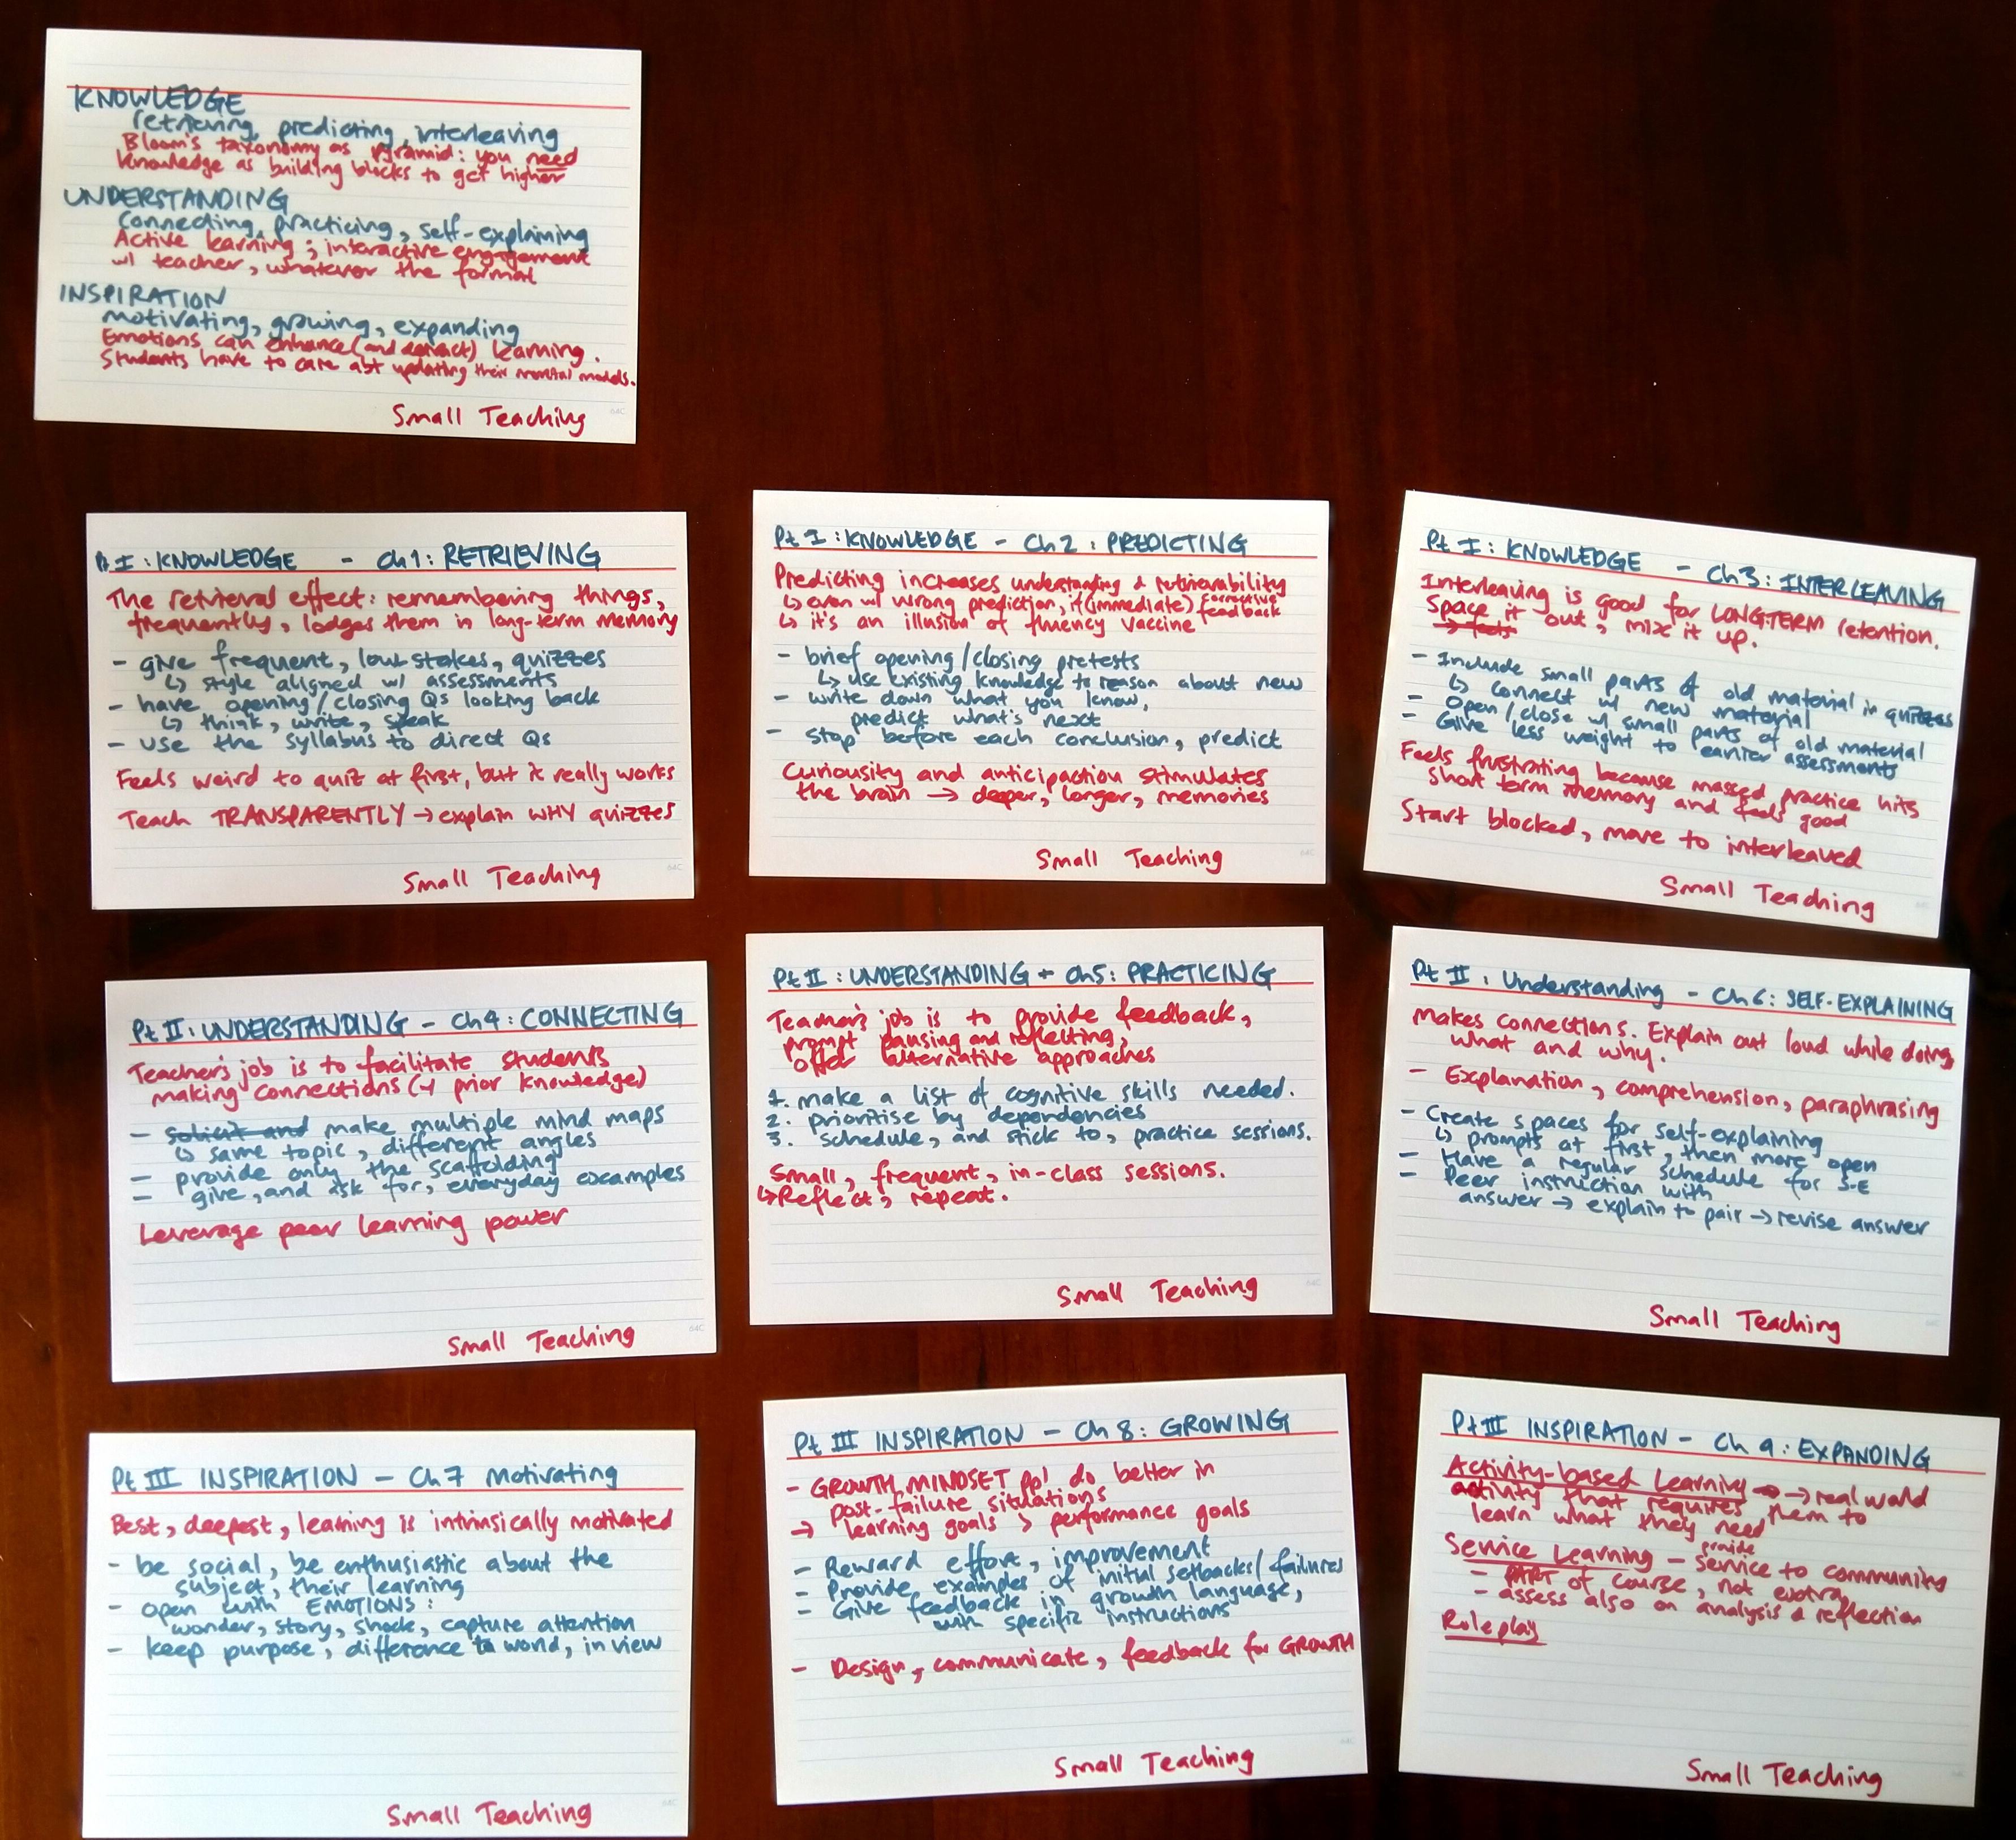 KNOWLEDGE
retrieving, predicting, interleaving
Bloom's taxonomy as pyramid: you need
knowledge as building blocks to get higher
UNDERSTANDING
connecting, practicing, self-explaining
Active learning; interactive engagement
w/ teacher, whatever the format
INSPIRATION
motivating, growing, expanding
Emotions can enhance (and detract) learning.
Students have to care abt updating their mental models.
Small Teaching
Pt I: KNOWLEDGE - Ch1: RETRIEVING
The retrieval effect: remembering things,
frequently, lodges them in long-term memory
- give frequent, low stakes, quizzes
↳ style aligned w/ assessments
- have opening/closing Qs looking back
↳ think, write, speak
- use the syllabus to direct Qs
Feels weird to quiz at first, but it really works
Teach TRANSPARENTLY → explain WHY quizzes
Small Teaching
Pt I: KNOWLEDGE - Ch2: PREDICTING
Predicting increases understanding & retrievability
↳ even w/ wrong prediction, if (immediate) corrective feedback
↳ it's an illusion of fluency vaccine
- brief opening/closing pretests
↳ use existing knowledge to reason about new
- write down what you know,
predict what's next
- stop before each conclusion, predict
Curiousity and anticipaction stimulates
the brain → deeper, longer, memories
Small Teaching
Pt I: KNOWLEDGE - Ch3: INTERLEAVING
Interleaving is good for LONG-TERM retention.
Space it out, mix it up.
- Include small parts of old material in quizzes
↳ connect w/ new material
- Open/close w/ small parts of old material
- Give less weight to earlier assessments
Feels frustrating because massed practice hits
short term memory and feels good
Start blocked, move to interleaved
Small Teaching
Pt II: UNDERSTANDING - Ch4: CONNECTING
Teacher's job is to facilitate students
making connections (w/ prior knowledge)
- solicit and make multiple mind maps
↳ same topic, different angles
- provide only the scaffolding
- give, and ask for, everyday examples
Leverage peer learning power
Small Teaching
Pt II: UNDERSTANDING - Ch5: PRACTICING
Teacher's job is to provide feedback,
prompt pausing and reflecting,
offer alternative approaches
1. make a list of cognitive skills needed.
2. prioritise by dependencies
3. schedule, and stick to, practice sessions.
Small, frequent, in-class sessions.
↳ Reflect, repeat.
Small Teaching
Pt II: Understanding - Ch6: SELF-EXPLAINING
Makes connections. Explain out loud while doing,
what and why.
- Explanation, comprehension, paraphrasing
- Create spaces for self-explaining
↳ prompts at first, then more open
- Have a regular schedule for S-E
- Peer instruction with
answer → explain to pair → revise answer
Small Teaching
Pt III INSPIRATION - Ch7 Motivating
Best, deepest, learning is intrinsically motivated
- be social, be enthusiastic about the
subject, their learning
- open with EMOTIONS:
wonder, story, shock, capture attention
- keep purpose, difference to world, in view
Small Teaching
Pt III INSPIRATION - Ch 8: GROWING
- GROWTH MINDSET ppl do better in
post-failure situations
→ learning goals > performance goals
- Reward effort, improvement
- Provide examples of initial setbacks/failures
- Give feedback in growth language,
with specific instructions
- Design, communicate, feedback for GROWTH
Small Teaching
Pt III INSPIRATION - Ch 9: EXPANDING
Activity-based Learning → real world
activity that requires them to
learn what they need
Service Learning - provide service to community
- PART of course, not extra
- assess also on analysis & reflection
Roleplay
Small Teaching